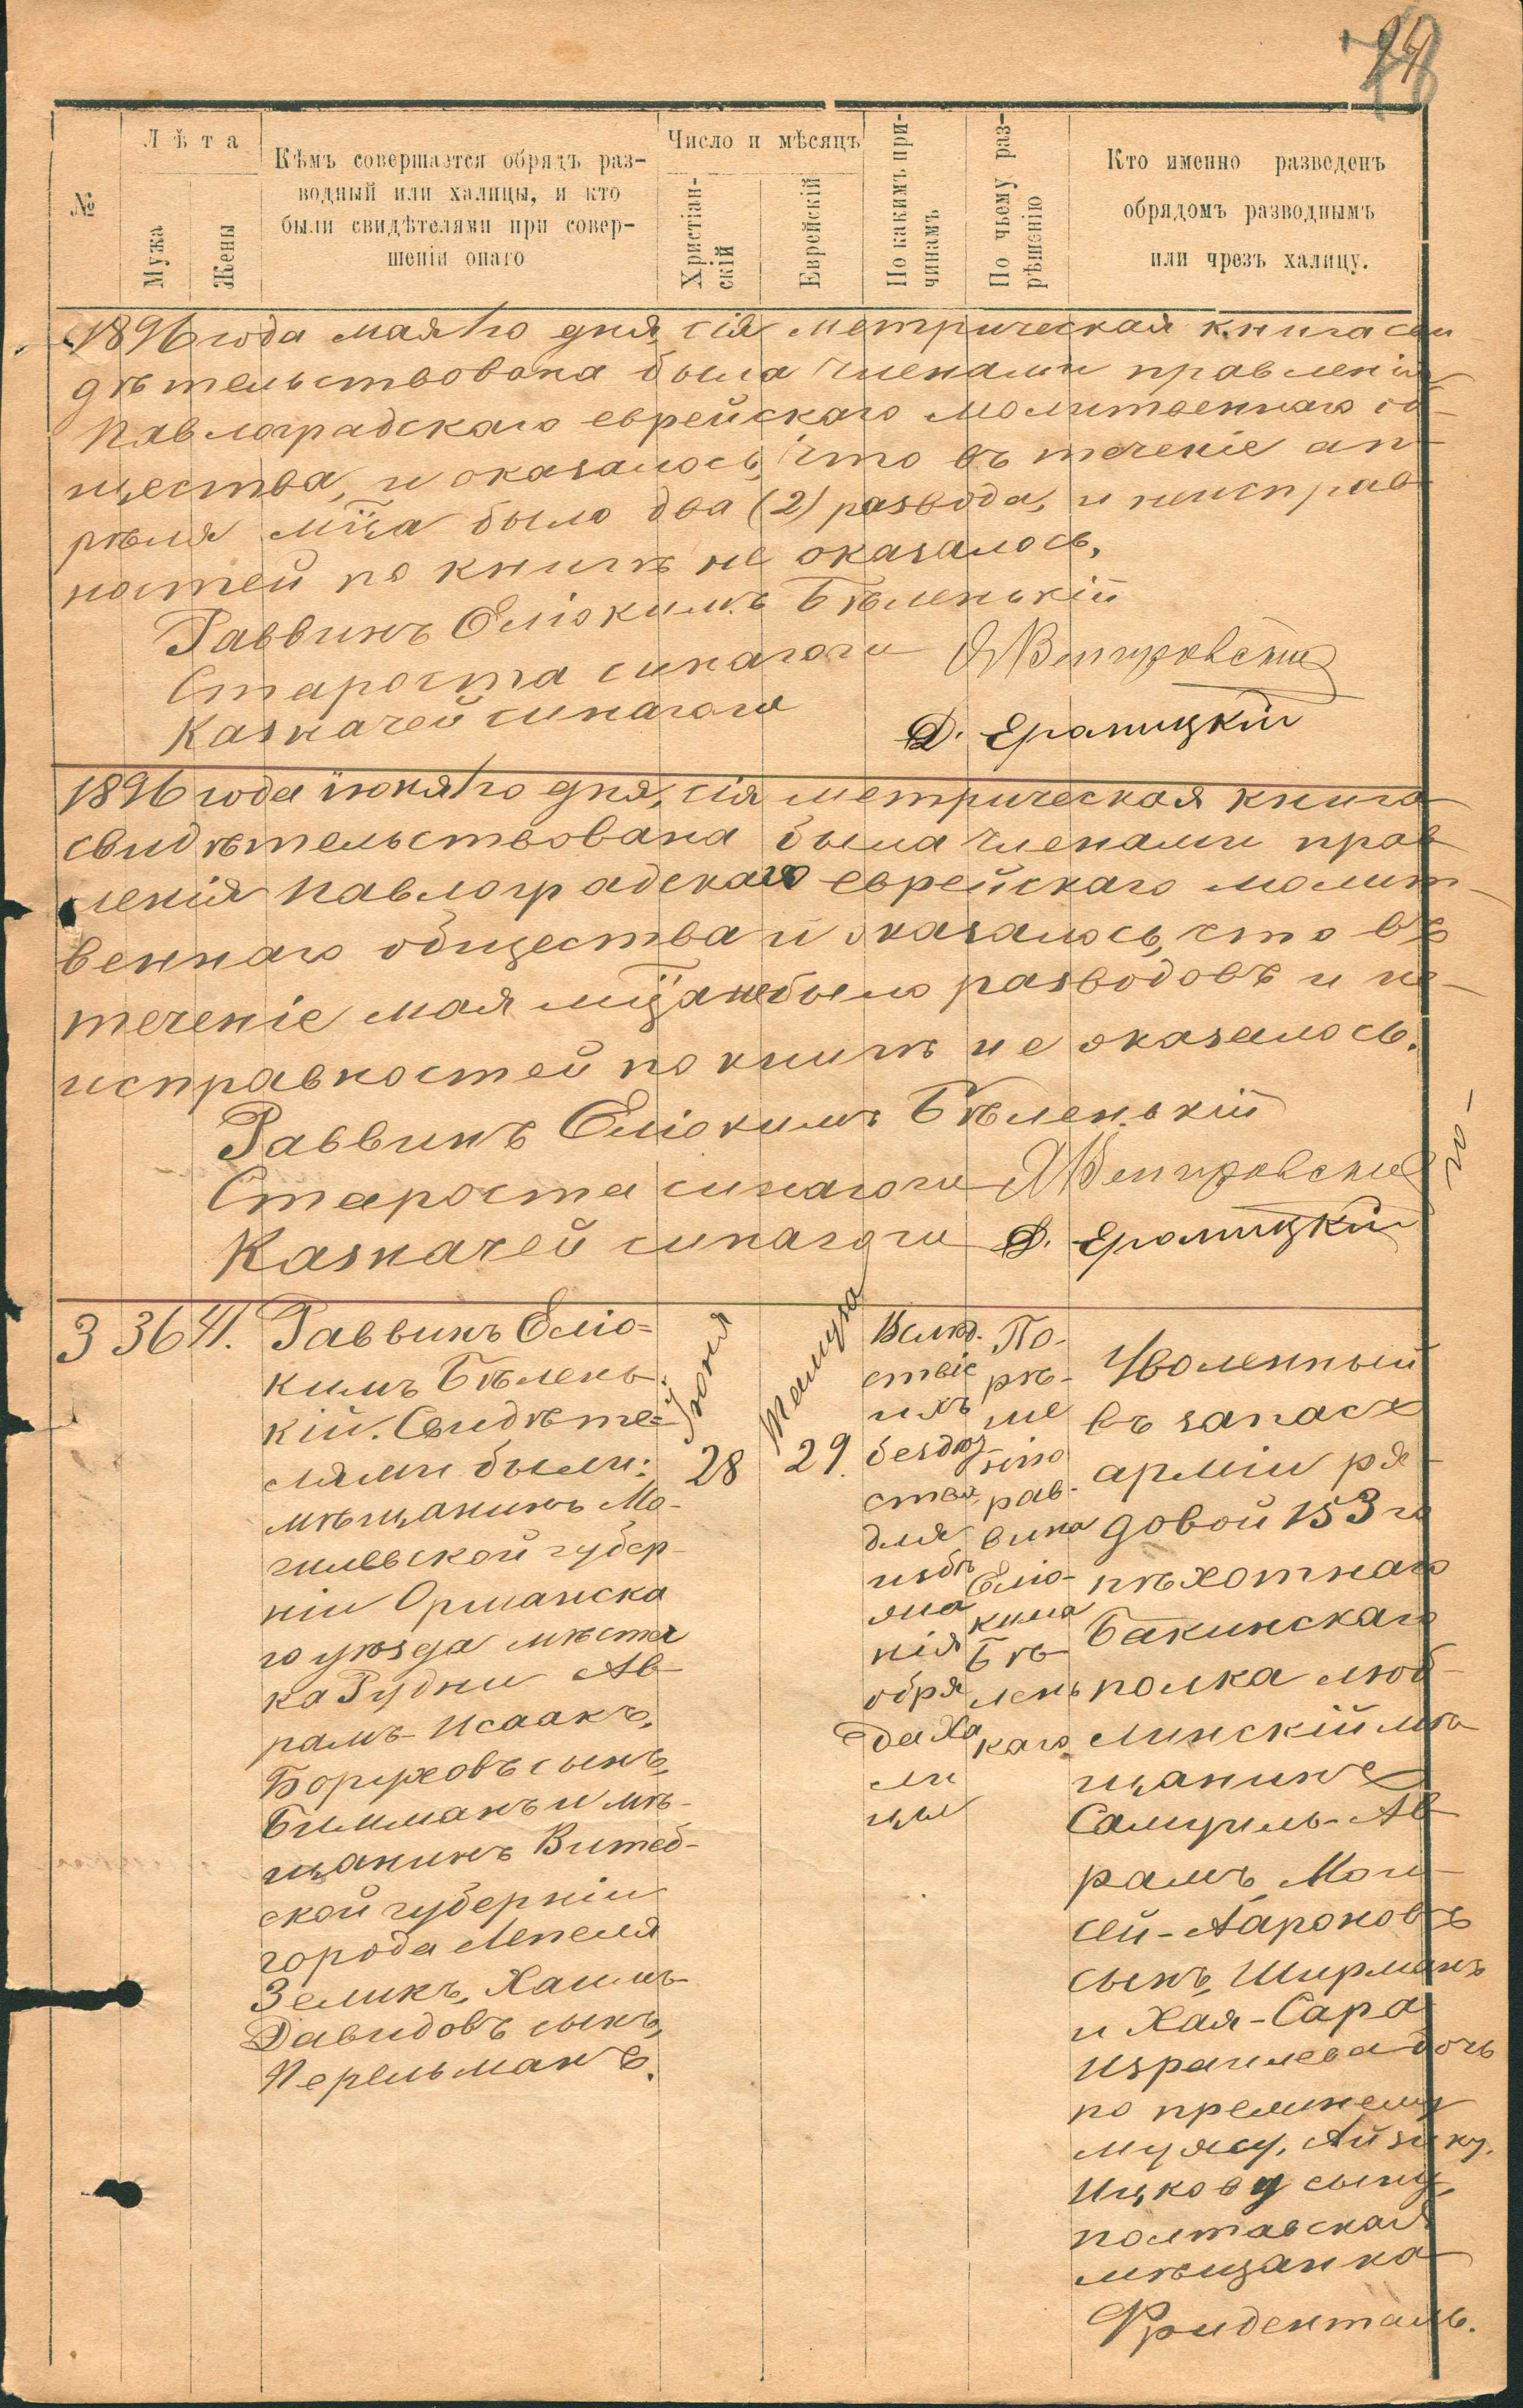 №
Лѣта
Мужа
Жены
Кѣмъ совершается обрядъ раз-
водный или халицы, и кто
были свидѣтелями при совер-
шеніи онаго
Число и мѣсяцъ
Христіан-
скій
Еврейскій
По какимъ при-
чинамъ
По чьему раз-
рѣшенію
Кто именно разведенъ
обрядомъ разводнымъ
или чрезъ халицу.
1896 года мая 1го дня, сія метрическая книга сви
дѣтельствована была членами правленія
Павлоградскаго еврейскаго молитвеннаго об-
щества, и оказалось, что въ теченіе ап-
рѣля мца было два (2) развода, и неисправ
ностей по книгѣ не оказалось.
Раввинъ Еліокимъ Бѣленькій
Староста синагоги
Казначей синагоги
Д. Ералицкій
1896 года іюня 1го дня, сія метрическая книга
свидѣтельствована была членами прав
ленія Павлоградскаго еврейскаго молит-
веннаго общества и оказалось, что въ
теченіе мая мца не было разводовъ и не-
исправностей по книгѣ не оказалось.
Раввинъ Еліокимъ Бѣленькій
Староста синагоги
Казначей синагоги Д. Ералицкій
3 36 41.
Раввинъ Еліо=
кимъ Бѣлень-
кій. Свидѣте=
лями были:
мѣщанинъ Мо-
гилевской губер-
ніи Оршанска
го уѣзда мѣстеч
ка Рудни Ав-
рамъ-Исаакъ,
Боруховъ сынъ,
Билманъ и мѣ-
щанинъ Витеб-
ской губерніи
города Лепеля
Зеликъ, Хаимъ-
Давидовъ сынъ,
Перельманъ.
Іюня
28
Тамуза
29.
Вслѣд.
ствіе
ихъ
бездѣт
ства
для
избѣ
жа
нія
обря
да Ха
ли
цы
По-
рѣ-
ше
нію
рав-
вина
Еліо-
кима
Бѣ-
лень
каго
Уволенный
въ запасъ
арміи ря-
довой 153 го
пѣхотнаго
Бакинскаго
полка люб-
линскій мѣ
щанинъ
Самуиль-Ав
рамъ, Мои-
сей-Аароновъ
сынъ, Ширманъ
и Хая-Сара
Израилева дочь
по прежнему
мужу, Айзику,
Ицкову сыну,
полтавская
мѣщанка
Фриденталь.